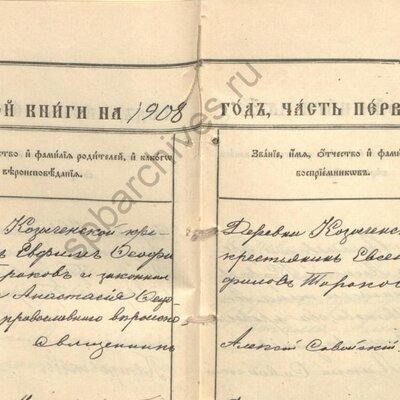 ОЙ КНИГИ НА 1908
ГОДЪ, ЧАСТЬ ПЕРВ
ство и фамилія родителей, и какогѡ
вѣроисповѣданія.
Званіе, имя, отчество и фами
воспріемникѡвъ.
Козыченской кре-
Евфимъ Ѳеофи
роковъ и законная
Анастасія
православнаго вѣроиспо
Священникъ
Деревни Козыченс
крестьянинъ Евсе
филовъ Тороко
Алексій Савойскій
spbarchives.ru